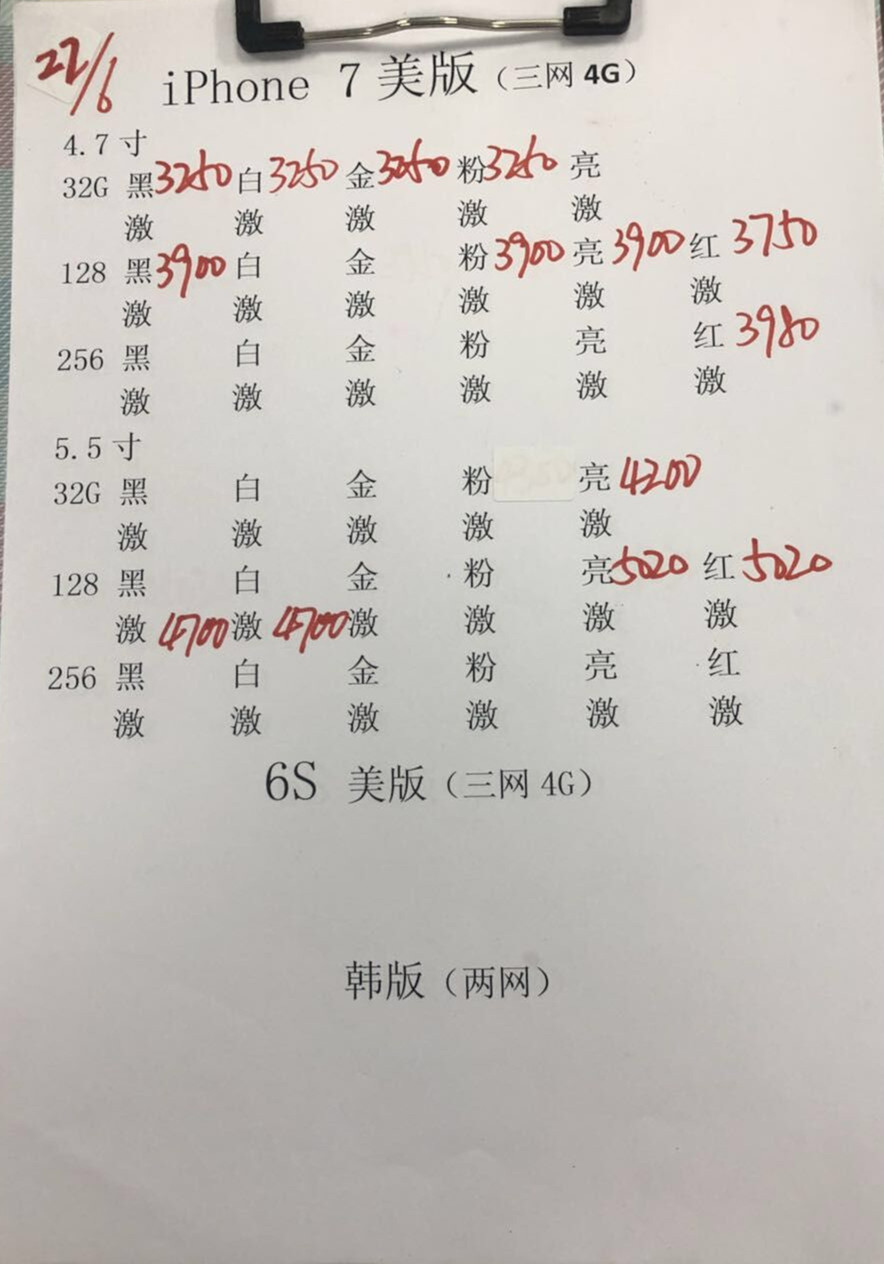 22/6
iPhone 7 美版（三网 4G）
4.7 寸
32G 黑3250 白3250 金3250 粉3250 亮
激 激 激 激 激
128 黑3900 白 金 粉3900 亮3900 红3750
激 激 激 激 激 激
256 黑 白 金 粉 亮 红3980
激 激 激 激 激 激
5.5 寸
32G 黑 白 金 粉 亮4200
激 激 激 激 激
128 黑 白 金 粉 亮5020 红5020
激4700 激4700 激 激 激 激
256 黑 白 金 粉 亮 红
激 激 激 激 激 激
6S 美版（三网 4G）
韩版（两网）